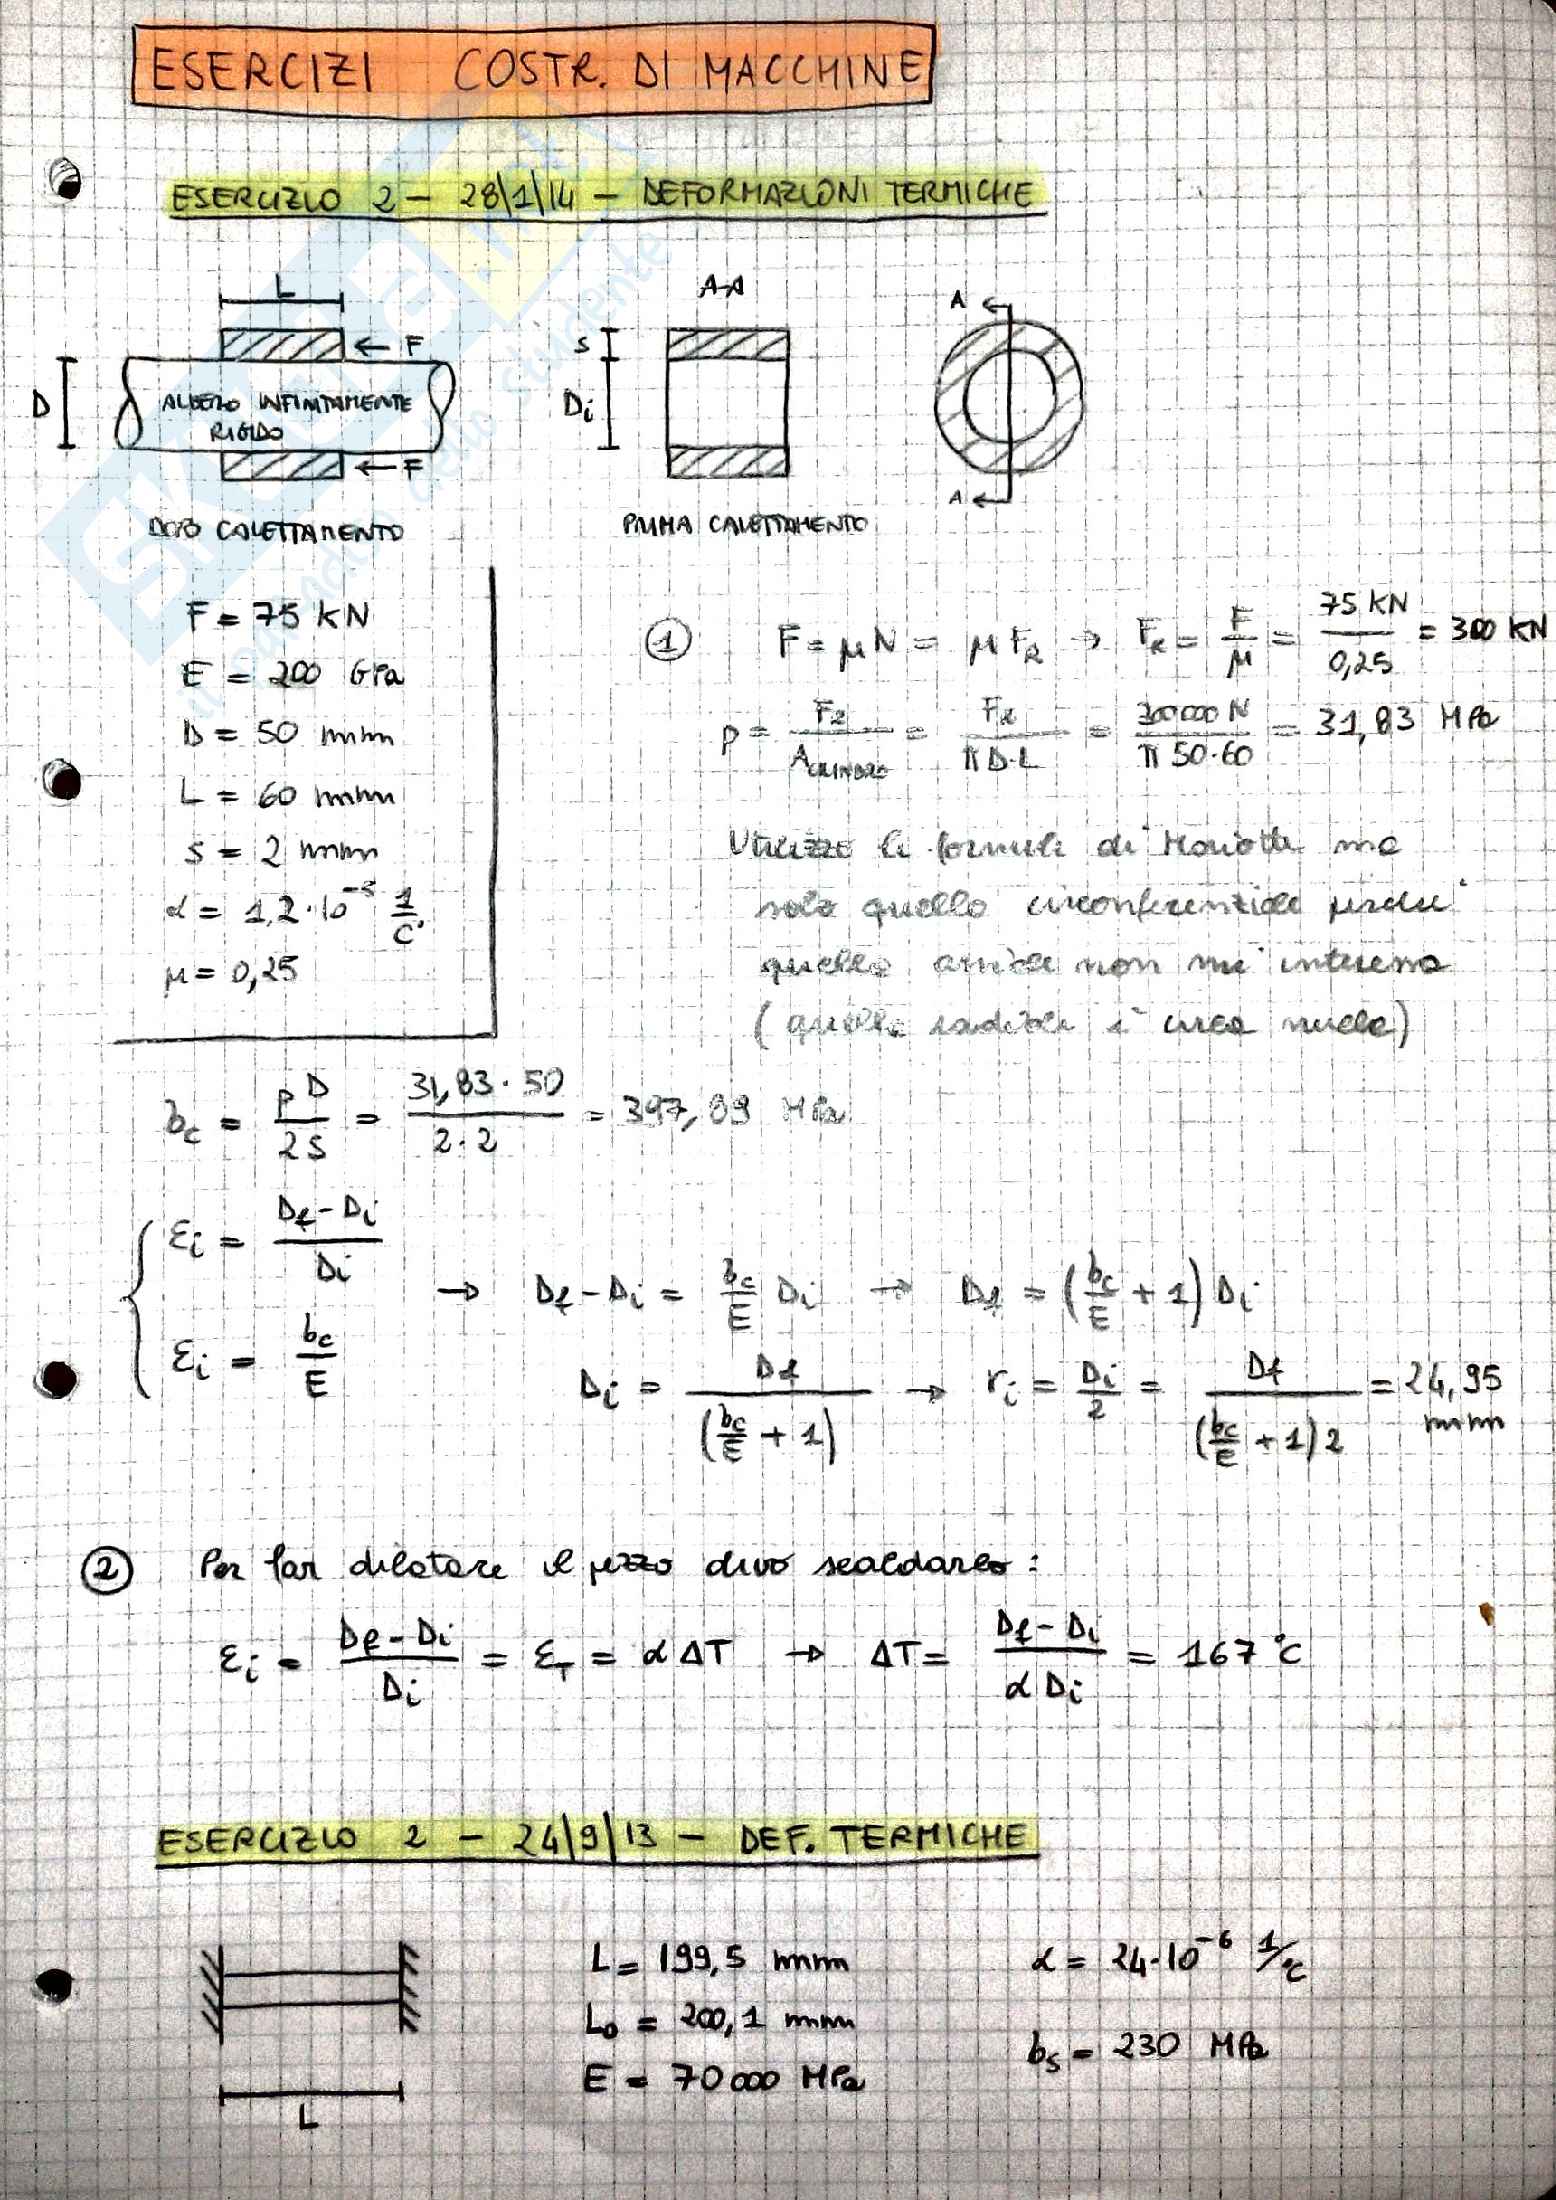 ESERCIZI COSTR. DI MACCHINE
ESERCIZIO 2 - 28/1/14 - DEFORMAZIONI TERMICHE
L
F
D
ALBERO INFINITAMENTE
RIGIDO
F
DOPO CALETTAMENTO
A-A
s
Di
PRIMA CALETTAMENTO
A
A
F = 75 KN
E = 200 GPa
D = 50 mm
L = 60 mm
s = 2 mm
α = 1,2·10⁻⁵ 1/C°
μ = 0,25
① F = μN = μFR → FR = F/μ = 75 KN/0,25 = 300 KN
p = FR/Acilindro = FR/πD·L = 300000 N/π 50·60 = 31,83 MPa
Utilizzo le formule di Mariotte ma
solo quello circonferenziale perché
quello assiale non mi interessa
(quello radiale è circa nullo)
σc = pD/2s = 31,83·50/2·2 = 397,89 MPa
εi = Df-Di/Di
εi = σc/E
→ Df-Di = σc/E Di → Df = (σc/E + 1) Di
Di = Df/(σc/E + 1) → ri = Di/2 = Df/(σc/E + 1)2 = 24,95 mm
② Per far dilatare il pezzo devo scaldarlo:
εi = Df-Di/Di = εT = α ΔT → ΔT = Df-Di/α Di = 167 °C
ESERCIZIO 2 - 24/9/13 - DEF. TERMICHE
L
L = 199,5 mm
L₀ = 200,1 mm
E = 70000 MPa
α = 24·10⁻⁶ 1/°C
σs = 230 MPa
SKUOLA.net
il paradiso dello studente